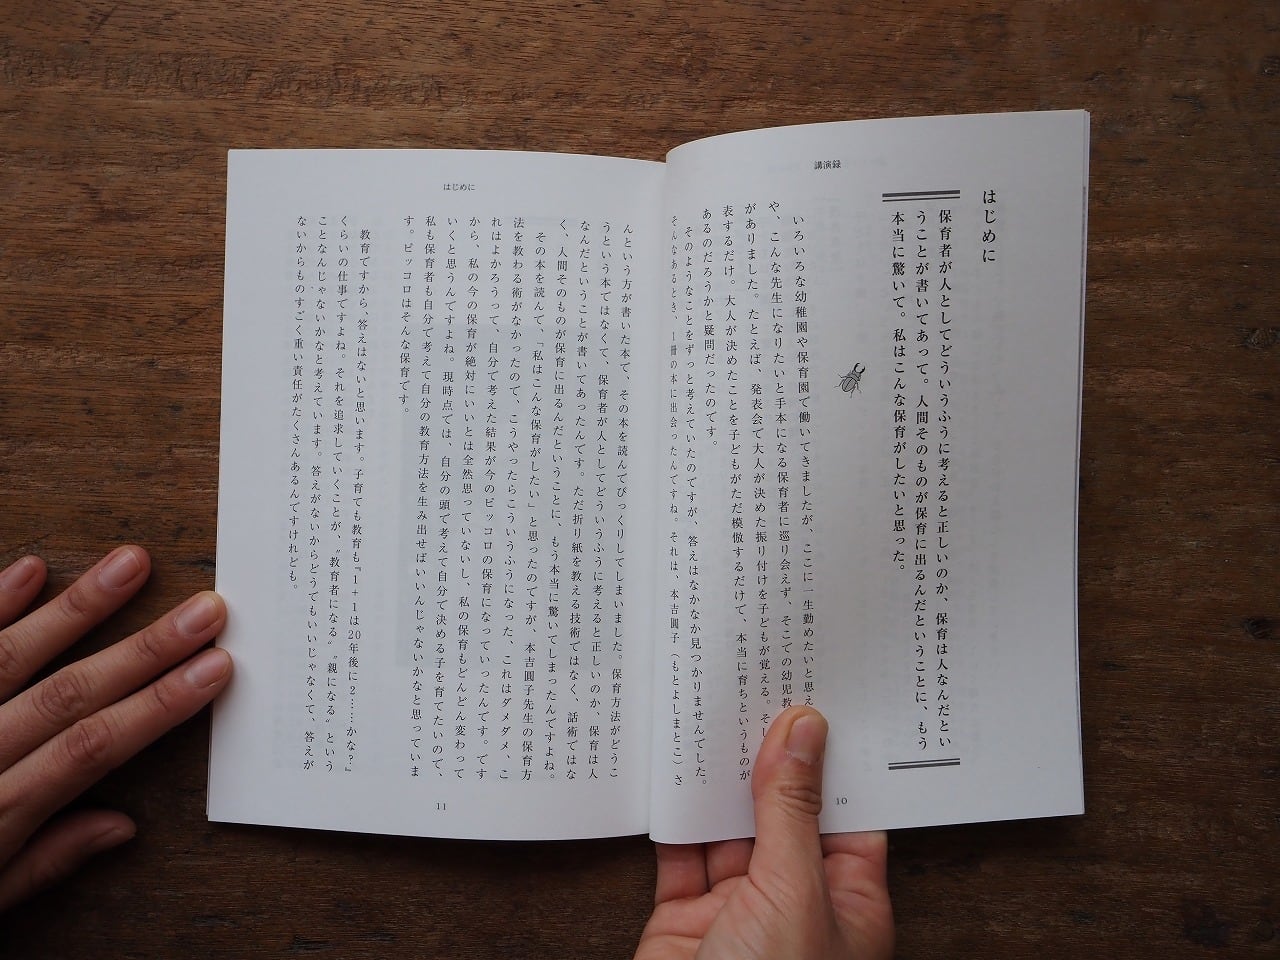 講演録
はじめに
保育者が人としてどういうふうに考えると正しいのか、保育は人なんだとい
うことが書いてあって。人間そのものが保育に出るんだということに、もう
本当に驚いて。私はこんな保育がしたいと思った。
いろいろな幼稚園や保育園で働いてきましたが、ここに一生勤めたいと思え
や、こんな先生になりたいと手本になる保育者に巡り会えず、そこでの幼児教
がありました。たとえば、発表会で大人が決めた振り付けを子どもが覚える。そし
表するだけ。大人が決めたことを子どもがただ模倣するだけで、本当に育ちというものが
あるのだろうかと疑問だったのです。
そのようなことをずっと考えていたのですが、答えはなかなか見つかりませんでした。
そんなあるとき、1冊の本に出会ったんですね。それは、本吉圓子(もとよしまとこ)さ
10
はじめに
んという方が書いた本で、その本を読んでびっくりしてしまいました。保育方法がどうこ
うという本ではなくて、保育者が人としてどういうふうに考えると正しいのか、保育は人
なんだということが書いてあったんです。ただ折り紙を教える技術ではなく、話術ではな
く、人間そのものが保育に出るんだということに、もう本当に驚いてしまったんですよね。
その本を読んで、「私はこんな保育がしたい」と思ったのですが、本吉圓子先生の保育方
法を教わる術がなかったので、こうやったらこういうふうになった、これはダメダメ、こ
れはよかろうって、自分で考えた結果が今のピッコロの保育になっていったんです。です
から、私の今の保育が絶対にいいとは全然思っていないし、私の保育もどんどん変わって
いくと思うんですよね。現時点では、自分の頭で考えて自分で決める子を育てたいので、
私も保育者も自分で考えて自分の教育方法を生み出せばいいんじゃないかなと思っていま
す。ピッコロはそんな保育です。
教育ですから、答えはないと思います。子育ても教育も『1+1は20年後に2……かな?』
くらいの仕事ですよね。それを追求していくことが、〝教育者になる〟〝親になる〟という
ことなんじゃないかなと考えています。答えがないからどうでもいいじゃなくて、答えが
ないからものすごく重い責任がたくさんあるんですけれども。
11